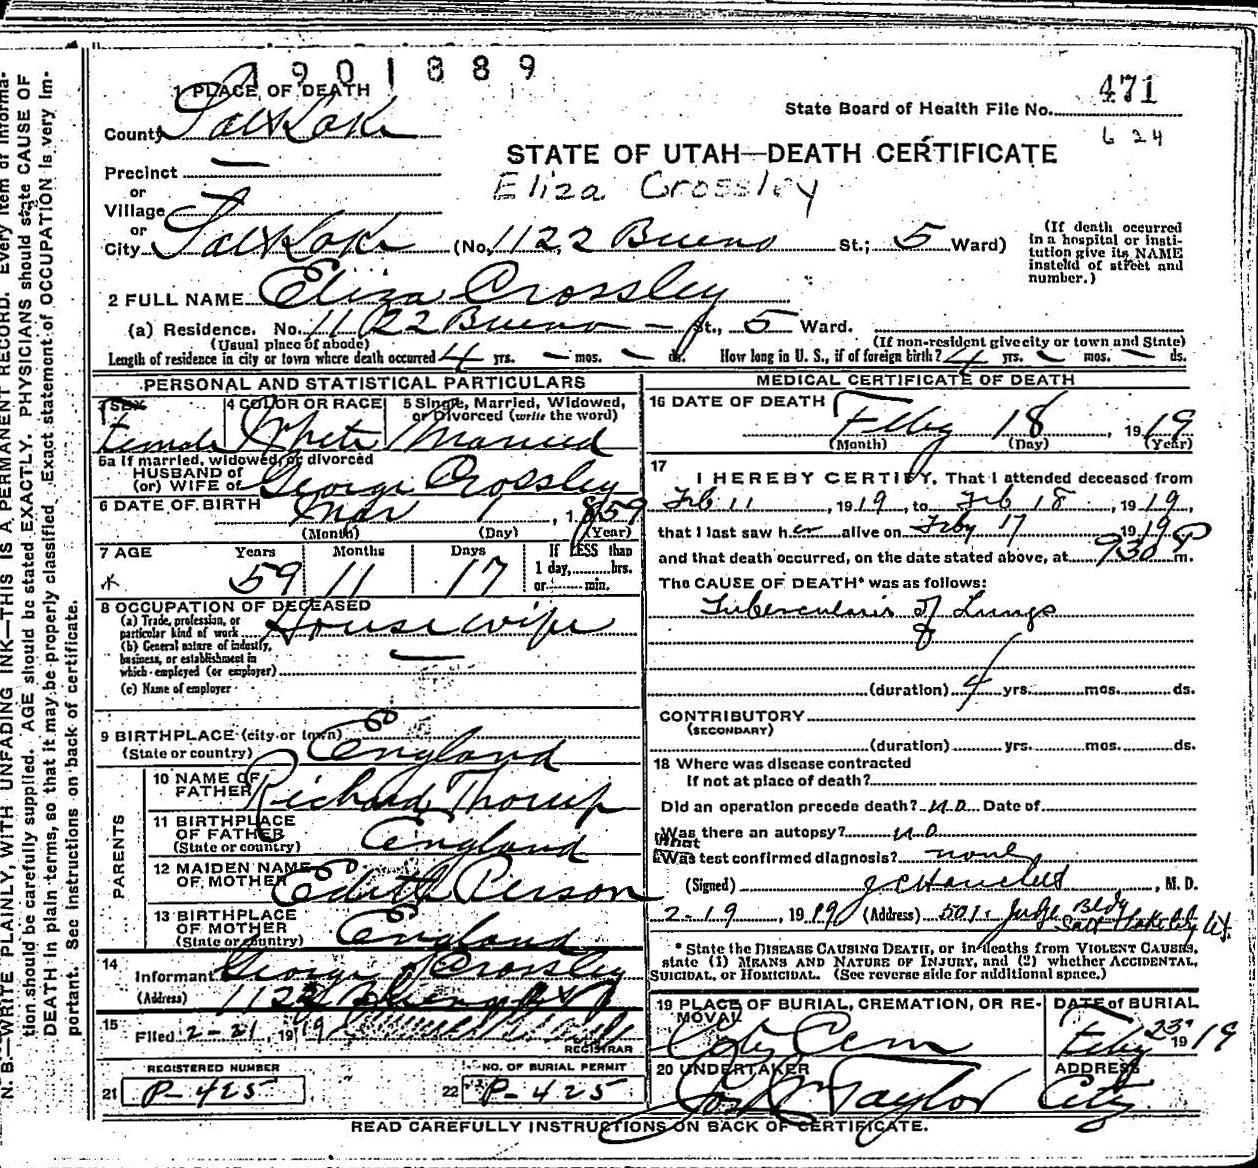 1901889
1 PLACE OF DEATH
471
State Board of Health File No.
County Salt Lake
6 24
STATE OF UTAH—DEATH CERTIFICATE
Precinct —
Eliza Crossley
or
Village
or
City Salt Lake (No. 1122 Bueno St.; 5 Ward)
(If death occurred in a hospital or institution give its NAME instead of street and number.)
2 FULL NAME Eliza Crossley
(a) Residence. No. 1122 Bueno — St., 5 Ward.
(Usual place of abode) (If non-resident give city or town and State)
Length of residence in city or town where death occurred 4 yrs. — mos. — ds. How long in U. S., if of foreign birth? 4 yrs. — mos. — ds.
PERSONAL AND STATISTICAL PARTICULARS
3 SEX 4 COLOR OR RACE 5 Single, Married, Widowed, or Divorced (write the word)
Female White Married
5a If married, widowed, or divorced
HUSBAND of
(or) WIFE of George Crossley
6 DATE OF BIRTH Mar 1, 1859
(Month) (Day) (Year)
7 AGE Years Months Days If LESS than
1 day, hrs.
or min.
59 11 17
8 OCCUPATION OF DECEASED
(a) Trade, profession, or
particular kind of work Housewife
(b) General nature of industry,
business, or establishment in
which employed (or employer) —
(c) Name of employer
9 BIRTHPLACE (city or town)
(State or country) England
PARENTS
10 NAME OF
FATHER Richard Thorup
11 BIRTHPLACE
OF FATHER
(State or country) England
12 MAIDEN NAME
OF MOTHER Edith Person
13 BIRTHPLACE
OF MOTHER
(State or country) England
14
Informant George Crossley
(Address) 1122
15
Filed 2-21, 1919
REGISTRAR
REGISTERED NUMBER NO. OF BURIAL PERMIT
21 P-425 22 P-425
MEDICAL CERTIFICATE OF DEATH
16 DATE OF DEATH
Feby 18, 1919
(Month) (Day) (Year)
17
I HEREBY CERTIFY, That I attended deceased from
Feb 11, 1919, to Feb 18, 1919,
that I last saw her alive on Feby 17 1919,
and that death occurred, on the date stated above, at 930 P m.
The CAUSE OF DEATH* was as follows:
Tubercularis of Lungs
(duration) 4 yrs. mos. ds.
CONTRIBUTORY
(SECONDARY)
(duration) yrs. mos. ds.
18 Where was disease contracted
If not at place of death?
Did an operation precede death? no Date of
Was there an autopsy? no
What
Was test confirmed diagnosis? none
(Signed) , M. D.
2-19, 1919 (Address) 501- Judge Bldg
Salt Lake City Ut.
* State the DISEASE CAUSING DEATH, or in deaths from VIOLENT CAUSES,
state (1) MEANS AND NATURE OF INJURY, and (2) whether ACCIDENTAL,
SUICIDAL, or HOMICIDAL. (See reverse side for additional space.)
19 PLACE OF BURIAL, CREMATION, OR REMOVAL DATE of BURIAL
City Cem Feby 23 1919
20 UNDERTAKER ADDRESS
Jos Wm Taylor City
READ CAREFULLY INSTRUCTIONS ON BACK OF CERTIFICATE.
N. B.—WRITE PLAINLY, WITH UNFADING INK—THIS IS A PERMANENT RECORD. Every item of informa-
tion should be carefully supplied. AGE should be stated EXACTLY. PHYSICIANS should state CAUSE OF
DEATH in plain terms, so that it may be properly classified. Exact statement of OCCUPATION is very im-
portant. See instructions on back of certificate.